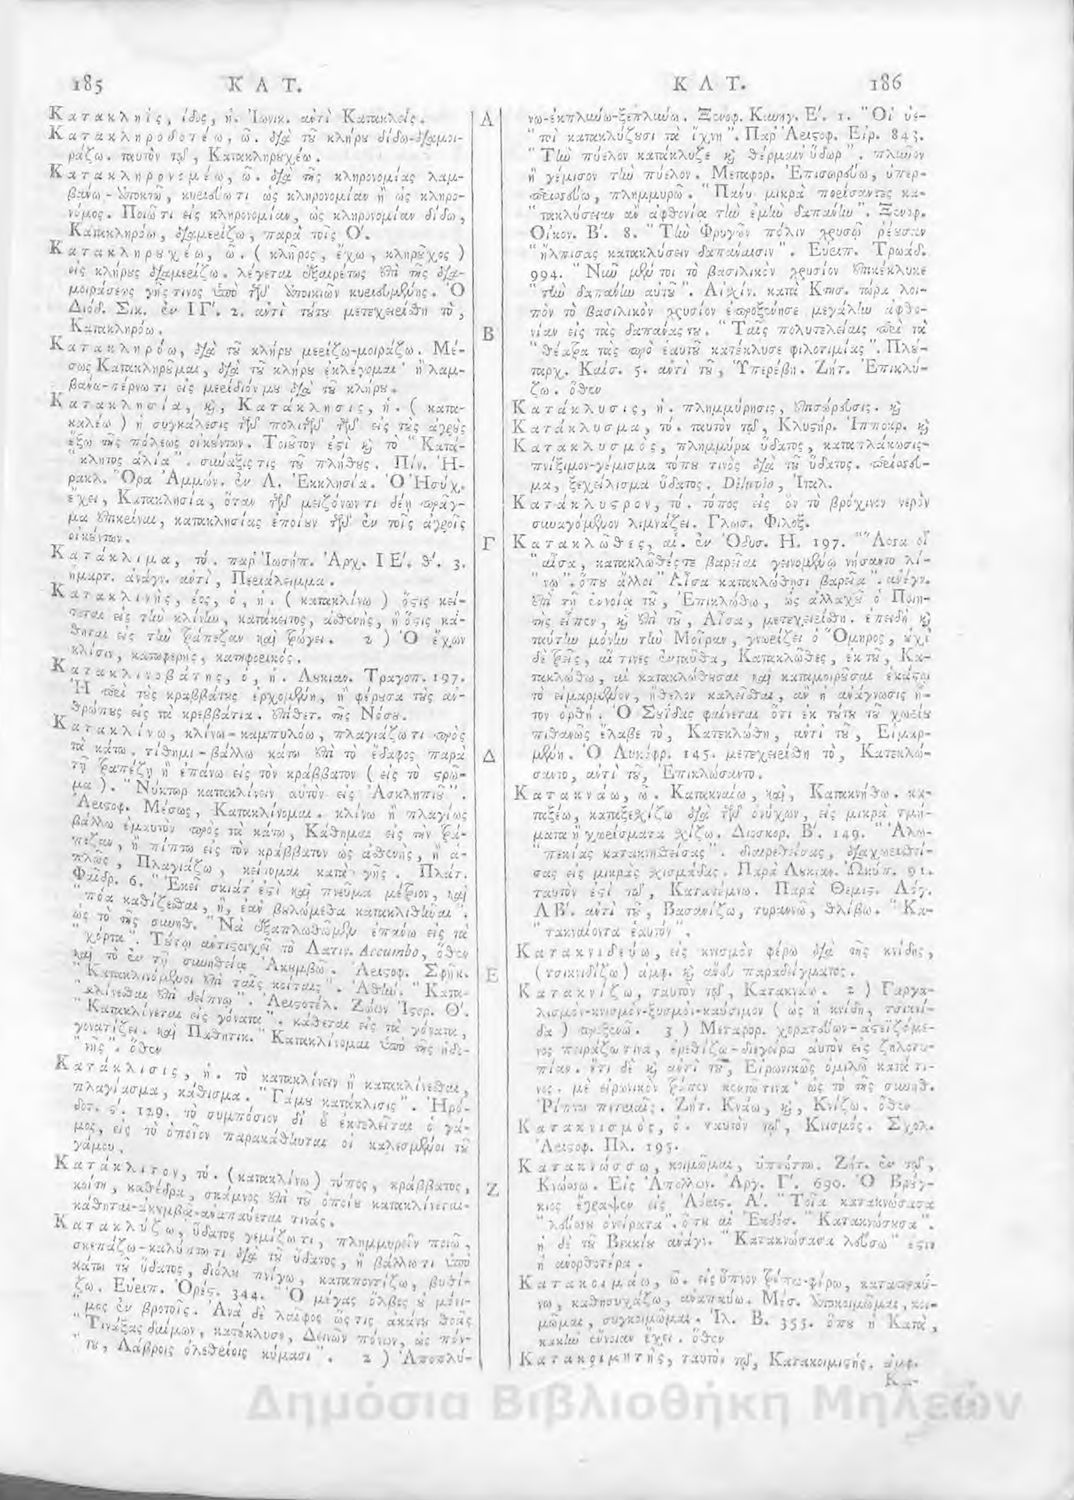 185 ΚΑΤ.
Κατακληΐς, ίδος, ἡ. Ἰωνικ. αντί Κατακλείς.
Κατακληροδοτέω, ῶ. διὰ τοῦ κλήρου δίδω-διαμοι-
ράζω. ταυτὸν τῷ, Κατακληρουχέω.
Κατακληρονομέω, ῶ. διὰ τῆς κληρονομίας λαμ-
βάνω - ἀποκτῶ, κυριεύω τι ὡς κληρονομίαν ἢ ὡς κληρο-
νόμος. Ποιῶ τι εἰς κληρονομίαν, ὡς κληρονομίαν δίδω,
Κατακληρόω, διαμερίζω, παρὰ τοῖς Ο'.
Κατακληρουχέω, ῶ. ( κλῆρος, ἔχω, κληροῦχος )
εἰς κλήρους διαμερίζω. λέγεται ἐξαιρέτως ἐπὶ τῆς δια-
μοιράσεως γῆς τινος ὑπὸ τῶν ἀποικιῶν κυριευομένης. Ὁ
Διόδ. Σικ. ἐν ΙΓ'. 2. αντί τούτου μετεχειρίσθη τὸ,
Κατακληρόω.
Κατακληρόω, διὰ τοῦ κλήρου μερίζω-μοιράζω. Μέ-
σως Κατακληροῦμαι, διὰ τοῦ κλήρου ἐκλέγομαι· ἢ λαμ-
βάνω-πέρνω τι εἰς μερίδιόν μου διὰ τοῦ κλήρου.
Κατακλησία, καὶ, Κατάκλησις, ἡ. ( κατα-
καλέω ) ἡ συγκάλεσις τῶν πολιτῶν τῶν εἰς τοὺς ἀγροὺς
ἔξω τῆς πόλεως οἰκούντων. Τοιοῦτον ἐστὶ καὶ τὸ " Κατά-
" κλητος ἁλία ". σύναξίς τις τοῦ πλήθους. Πίν. Ἡ-
ρακλ. Ὅρα Ἀμμών. ἐν Λ. Ἐκκλησία. Ὁ Ἡσύχ.
ἔχει, Κατακλησία, ὅταν τῶν μειζόνων τι δέῃ πράγ-
μα ἐπικεῖναι, κατακλησίας ἐποίουν τῶν ἐν τοῖς ἀγροῖς
οἰκούντων.
Κατάκλιμα, τό. παρ' Ἰωσήπ. Ἀρχ. ΙΕ'. θ'. 3.
ἡμαρτ. ἀνάγν. αντί, Περιάλειμμα.
Κατακλινής, έος, ὁ, ἡ. ( κατακλίνω ) ὅστις κεί-
τεται εἰς τὴν κλίνην, κατάκοιτος, ἀσθενής, ἢ ὅστις κά-
θηται εἰς τὴν τράπεζαν καὶ τρώγει. 2 ) Ὁ ἔχων
κλίσιν, κατωφερής, κατηφορικός.
Κατακλινοβάτης, ὁ, ἡ. Λουκιαν. Τραγοπ. 197.
Ἡ περὶ τοὺς κραββάτους ἐρχομένη, ἢ φέρουσα τοὺς αν-
θρώπους εἰς τὰ κρεββάτια. ἐπίθετ. τῆς Νόσου.
Κατακλίνω, κλίνω-καμπυλόω, πλαγιάζω τι πρὸς
τὰ κάτω. τίθημι - βάλλω κάτω ἐπὶ τὸ ἔδαφος παρὰ
τῇ τραπέζῃ ἢ ἐπάνω εἰς τὸν κράββατον ( εἰς τὸ στρῶ-
μα ). " Νύκτωρ κατακλίνειν αὐτὸν εἰς Ἀσκληπιοῦ ".
Ἀριστοφ. Μέσως, Κατακλίνομαι. κλίνω ἢ πλαγίως
βάλλω ἐμαυτὸν πρὸς τὰ κάτω, Κάθημαι εἰς τὴν τρά-
πεζαν, ἢ πίπτω εἰς τὸν κράββατον ὡς ἀσθενής, ἢ ἁ-
πλῶς, Πλαγιάζω, κείτομαι κατὰ γῆς. Πλάτ.
Φαῖδρ. 6. " Ἐκεῖ σκιάτ' ἐστὶ καὶ πνεῦμα μέτριον, καὶ
" πόα καθίζεσθαι, ἢ, ἐὰν βουλώμεθα κατακλιθῆναι ".
ὡς τὸ τῆς συνηθ. " Νὰ ἐξαπλωθῶμεν ἐπάνω εἰς τὰ
" χόρτα ". Τούτῳ ἀντιστοιχεῖ τὸ Λατιν. Accumbo, ὅθεν
καὶ τὸ ἐν τῇ συνηθείᾳ Ἀκουμβῶ. Ἀριστοφ. Σφῆκ.
" Κατακλινόμενοι ἐπὶ ταῖς κοίταις ". Ἀθήν. " Κατα-
" κλίνεσθαι ἐπὶ δείπνῳ ". Ἀριστοτέλ. Ζώων Ἱστορ. Θ'.
" Κατακλίνεται εἰς γόνατα ". κάθεται εἰς τὰ γόνατα,
γονατίζει. καὶ Παθητικ. " Κατακλίνομαι ὑπὸ τῆς ἡδο-
" νῆς ". ὅθεν
Κατάκλισις, ἡ. τὸ κατακλίνειν ἢ κατακλίνεσθαι,
πλαγίασμα, κάθισμα. " Γάμου κατάκλισις ". Ἡρό-
δοτ. ς'. 129. τὸ συμπόσιον δι' οὗ ἐκτελεῖται ὁ γά-
μος, εἰς τὸ ὁποῖον παρακάθηνται οἱ καλεσμένοι τοῦ
γάμου.
Κατάκλιτον, τό. (κατακλίνω) τύπος, κράββατος,
κοίτη, καθέδρα, σκάμνος ἐπὶ τοῦ ὁποίου κατακλίνεται-
κάθηται-ἀκουμβᾷ-ἀναπαύεται τινάς.
Κατακλύζω, ὕδατος γεμίζω τι, πλημμυρεῖν ποιῶ,
σκεπάζω-καλύπτω τι διὰ τοῦ ὕδατος, ἢ βάλλω τι ὑπὸ
κάτω τοῦ ὕδατος, διόλου πνίγω, καταποντίζω, βυθί-
ζω. Εὐριπ. Ὀρέσ. 344. " Ὁ μέγας ὄλβος οὐ μόνι-
" μος ἐν βροτοῖς. Ἀνὰ δὲ λαῖφος ὥς τις ἀκάτου θοᾶς
" Τινάξας δαίμων, κατέκλυσε, Δεινῶν πόνων, ὡς πόν-
" του, Λάβροις ὀλεθρίοις κύμασι ". 2 ) Ἀποπλύ-
Α
Β
Γ
Δ
Ε
Ζ
ΚΑΤ. 186
νω-ἐκπλύνω-ξεπλύνω. Ξενοφ. Κυνηγ. Ε'. 1. " Οἱ ὑε-
" τοὶ κατακλύζουσι τὰ ἴχνη ". Παρ' Ἀριστοφ. Εἰρ. 843.
" Τὴν πύελον κατάκλυζε καὶ θέρμαιν' ὕδωρ ". πλῦνον
ἢ γέμισον τὴν πύελον. Μεταφορ. Ἐπισωρεύω, ὑπερ-
περισσεύω, πλημμυρῶ. " Πάνυ μικρὰ πορίσαντες κα-
" τακλύσειαν ἂν ἀφθονίᾳ τὴν ἐμὴν δαπάνην ". Ξενοφ.
Οἰκον. Β'. 8. " Τὴν Φρυγῶν πόλιν χρυσῷ ῥέουσαν
" ἤλπισας κατακλύσειν δαπάναισιν ". Εὐριπ. Τρωάδ.
994. " Νῦν μέν τοι τὸ βασιλικὸν χρυσίον ἐπικέκλυκε
" τὴν δαπάνην αὐτοῦ ". Αἰσχίν. κατὰ Κτησ. τώρα λοι-
πὸν τὸ βασιλικὸν χρυσίον ἐπροξένησε μεγάλην ἀφθο-
νίαν εἰς τὰς δαπάνας του. " Ταῖς πολυτελείαις περὶ τὰ
" θέατρα τὰς πρὸ ἑαυτοῦ κατέκλυσε φιλοτιμίας ". Πλού-
ταρχ. Καίσ. 5. αντί τοῦ, Ὑπερέβη. Ζήτ. Ἐπικλύ-
ζω. ὅθεν
Κατάκλυσις, ἡ. πλημμύρησις, ἐπισώρευσις. καὶ
Κατάκλυσμα, τό. ταυτὸν τῷ, Κλυστήρ. Ἱπποκρ. καὶ
Κατακλυσμός, πλημμύρα ὕδατος, καταπλάκωσις-
πνίξιμον-γέμισμα τόπου τινὸς διὰ τοῦ ὕδατος. περίσσευ-
μα, ξεχείλισμα ὕδατος. Diluvio, Ἰταλ.
Κατάκλυστρον, τό. τόπος εἰς ὃν τὸ βρόχινον νερὸν
συναγόμενον λιμνάζει. Γλωσ. Φιλοξ.
Κατακλῶθες, αἱ. ἐν Ὀδυσ. Η. 197. " Ἅσσα οἱ
" αἶσα, κατακλῶθές τε βαρεῖαι γεινομένῳ νήσαντο λί-
" νῳ ". ὅπου ἄλλοι " Αἶσα κατακλώθησι βαρεῖα ". ἀνέγν.
ἐπὶ τῇ ἐννοίᾳ τοῦ, Ἐπικλώθω, ὡς ἀλλαχοῦ ὁ Ποιη-
τὴς εἶπεν, καὶ ἐπὶ τοῦ, Αἶσα, μετεχειρίσθη. ἐπειδὴ καὶ
ταύτην μόνην τὴν Μοῖραν, γνωρίζει ὁ Ὅμηρος, οὐχὶ
δὲ τρεῖς, αἵ τινες ἐνταῦθα, Κατακλῶθες, ἐκ τοῦ, Κα-
τακλώθω, αἱ κατακλώθουσαι καὶ καταμοιρῶσαι ἑκάστῳ
τὸ εἱμαρμένον, ἤθελον καλεῖσθαι, ἂν ἡ ἀνάγνωσις ἦ-
τον ὀρθή. Ὁ Σουΐδας φαίνεται ὅτι ἐκ τούτου τοῦ χωρίου
πιθανῶς ἔλαβε τὸ, Κατεκλώσθη, αντί τοῦ, Εἱμαρ-
μένη. Ὁ Λυκόφρ. 145. μετεχειρίσθη τὸ, Κατεκλώ-
σαντο, αντί τοῦ, Ἐπικλώσαντο.
Κατακνάω, ῶ. Κατακναίω, καὶ, Κατακνήθω. κα-
ταξέω, καταξεσχίζω διὰ τῶν ὀνύχων, εἰς μικρὰ τμή-
ματα ἢ χωρίσματα σχίζω. Διοσκορ. Β'. 149. " Ἀλω-
" πεκίας κατακνησθείσας ". διαιρεθείσας, διαχωρισθεί-
σας εἰς μικρὰς σχισμάδας. Παρὰ Λουκιαν. Ὠκύπ. 91.
ταυτὸν ἐστὶ τῷ, Κατατέμνω. Παρὰ Θεμισ. Λόγ.
ΛΒ'. αντί τοῦ, Βασανίζω, τυραννῶ, θλίβω. " Κα-
" τακναίοντα ἑαυτόν ".
Κατακνιδεύω, εἰς κνισμὸν φέρω διὰ τῆς κνίδης,
(τσικνιδίζω) ἀμφ. καὶ ἄνευ παραδείγματος.
Κατακνίζω, ταυτὸν τῷ, Κατακνάω. 2 ) Γαργα-
λισμὸν-κνισμὸν-ξυσμὸν-καύσιμον ( ὡς ἡ κνίδη, τσικνί-
δα ) προξενῶ. 3 ) Μεταφορ. χορατεύων-ἀστεϊζόμε-
νος πειράζω τινα, ἐρεθίζω-διεγείρω αὐτὸν εἰς ζηλοτυ-
πίαν. ἔτι δὲ καὶ αντί τοῦ, Εἰρωνικῶς ὁμιλῶ κατά τι-
νος. μὲ εἰρωνικὸν τρόπον κεντῶ τινα· ὡς τὸ τῆς συνηθ.
Ῥίπτω πιττακαῖς. Ζήτ. Κνάω, καὶ, Κνίζω. ὅθεν
Κατακνισμός, ὁ. ταυτὸν τῷ, Κνισμός. Σχολ.
Ἀριστοφ. Πλ. 195.
Κατακνώσσω, κοιμῶμαι, ὑπνώττω. Ζήτ. ἐν τῷ,
Κνώσσω. Εἰς Ἀπολλων. Ἀργ. Γ'. 690. Ὁ Βρύγ-
κιος ἔγραψεν εἰς Ἀριστ. Α'. " Τοῖα κατακνώσασα
" λεύσσω ὀνείρατα ". ὅτε αἱ Ἐκδόσ. " Κατακνώσκουσα ".
ἡ δὲ τοῦ Βεκκίου ἀνάγν. " Κατακνώσασα λεύσσω " ἐστιν
ἡ ἀνορθοτέρα.
Κατακοιμάω, ῶ. εἰς ὕπνον τρέπω-φέρω, καταπραΰ-
νω, καθησυχάζω, ἀναπαύω. Μέσ. Ἀποκοιμῶμαι, κοι-
μῶμαι, συγκοιμῶμαι. Ἰλ. Β. 355. ὅπου ἡ Κατὰ,
κακὴν ἔννοιαν ἔχει. ὅθεν
Κατακοιμητής, ταυτὸν τῷ, Κατακοιμιστής. ἀμφ.
Κα-
Δημόσια Βιβλιοθήκη Μηλεών